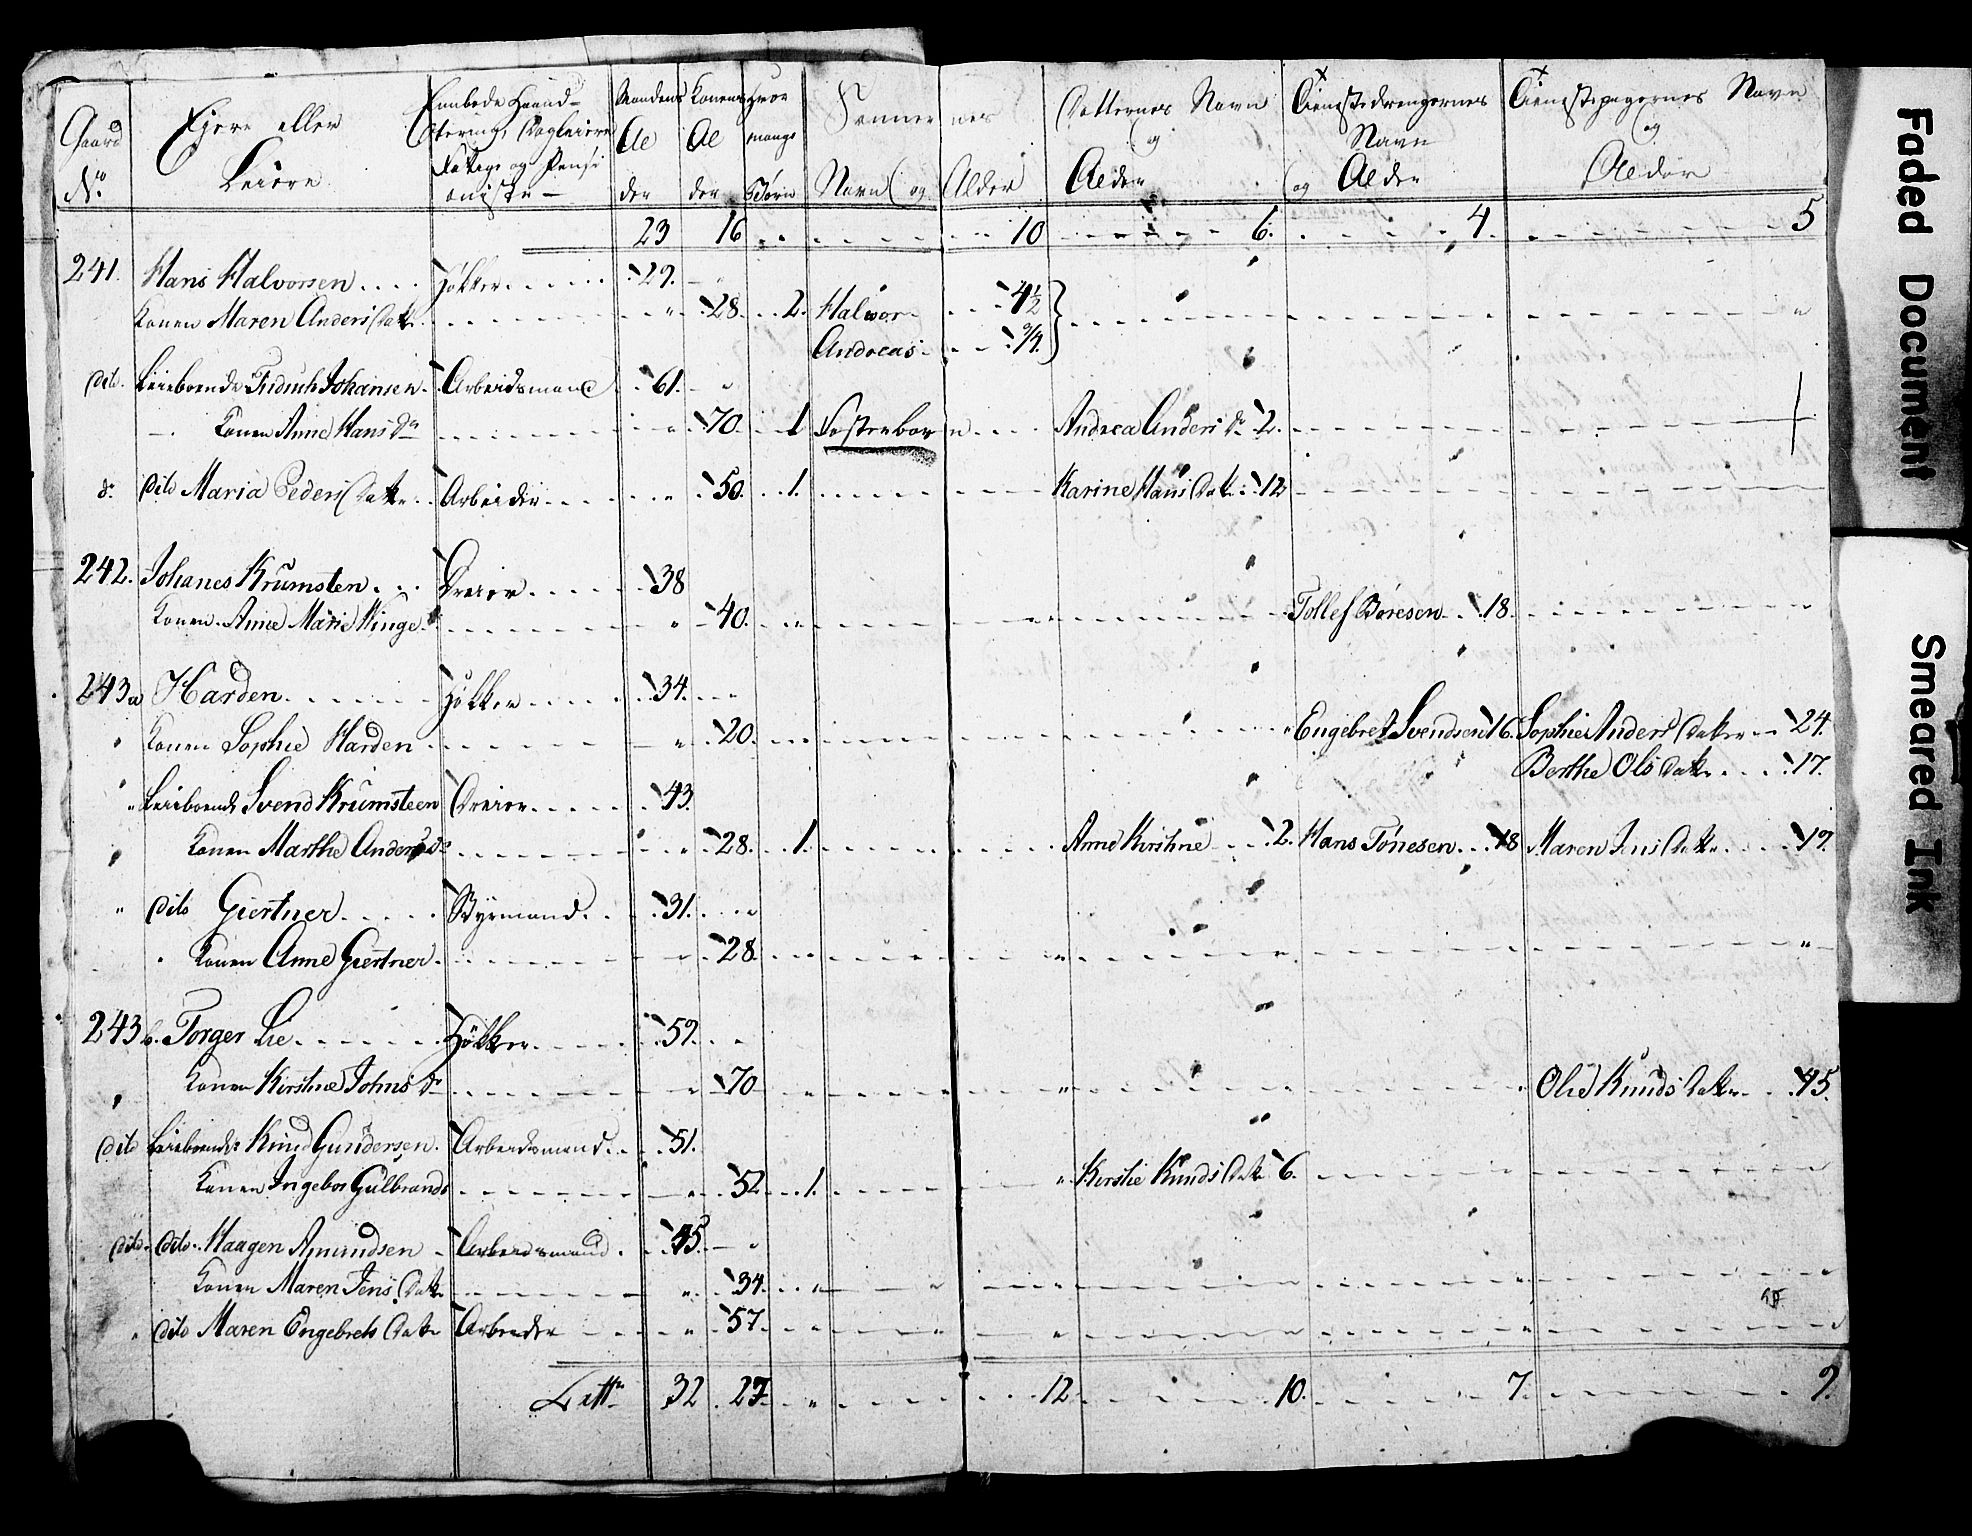 Gaard No Ejere eller Leiere Mandens Alder Konens Alder Hvor mange Børn Sønnernes Navn og Alder Døtternes Navn og Alder Tienestedrengernes Navn og Alder Tienestepigernes Navn og Alder
23 16 10 6. 4. 5
241. Hans Halvorsen Høkker 29.
Konen Maren Anders Datt. 28. 2. Halvor 4½
Andreas 9/4.
dito. Leieboende Fridrich Johansen Arbeidsmand 61.
Konen Anne Hans Dr 70. 1 Fosterbarn Andrea Anders Dr 2.
do dito Maria Peders Datter Arbeider 50. 1. Karine Hans Datt. 12
242. Johanes Krumsten Dreier 38
Konen Anne Marie Winge 40. Tollef Børesen 18.
243a Harden Høkker 34.
Konen Sophie Harden 20. Engebret Svendsen 16. Sophie Anders Datter 24.
Berthe Ols Datt. 17.
Leieboende Svend Krumsteen Dreier 43.
Konen Marthe Anders Dr 28. 1. Anne Kirstine 2. Hans Tønesen 18 Maren Jens Datt. 19.
dito Giertner Styrmand 31.
Konen Anne Giertner 28.
243 b. Torger Lie Høkker 59.
Konen Kirstine Johns Dr 70 Olie Knuds Datter 45.
dito Leieboende Knud Gundersen Arbeidsmand 51.
Konen Ingebor Gulbrands 52 1. Kirstie Knuds Datt. 6.
dito dito Haagen Amundsen Arbeidsmand 45.
Konen Maren Jens Datt. 34.
dito Maren Engebrets Datt. Arbeider 57.
Latt. 32 27 12 10. 7. 9.
Faded Document
Smeared Ink